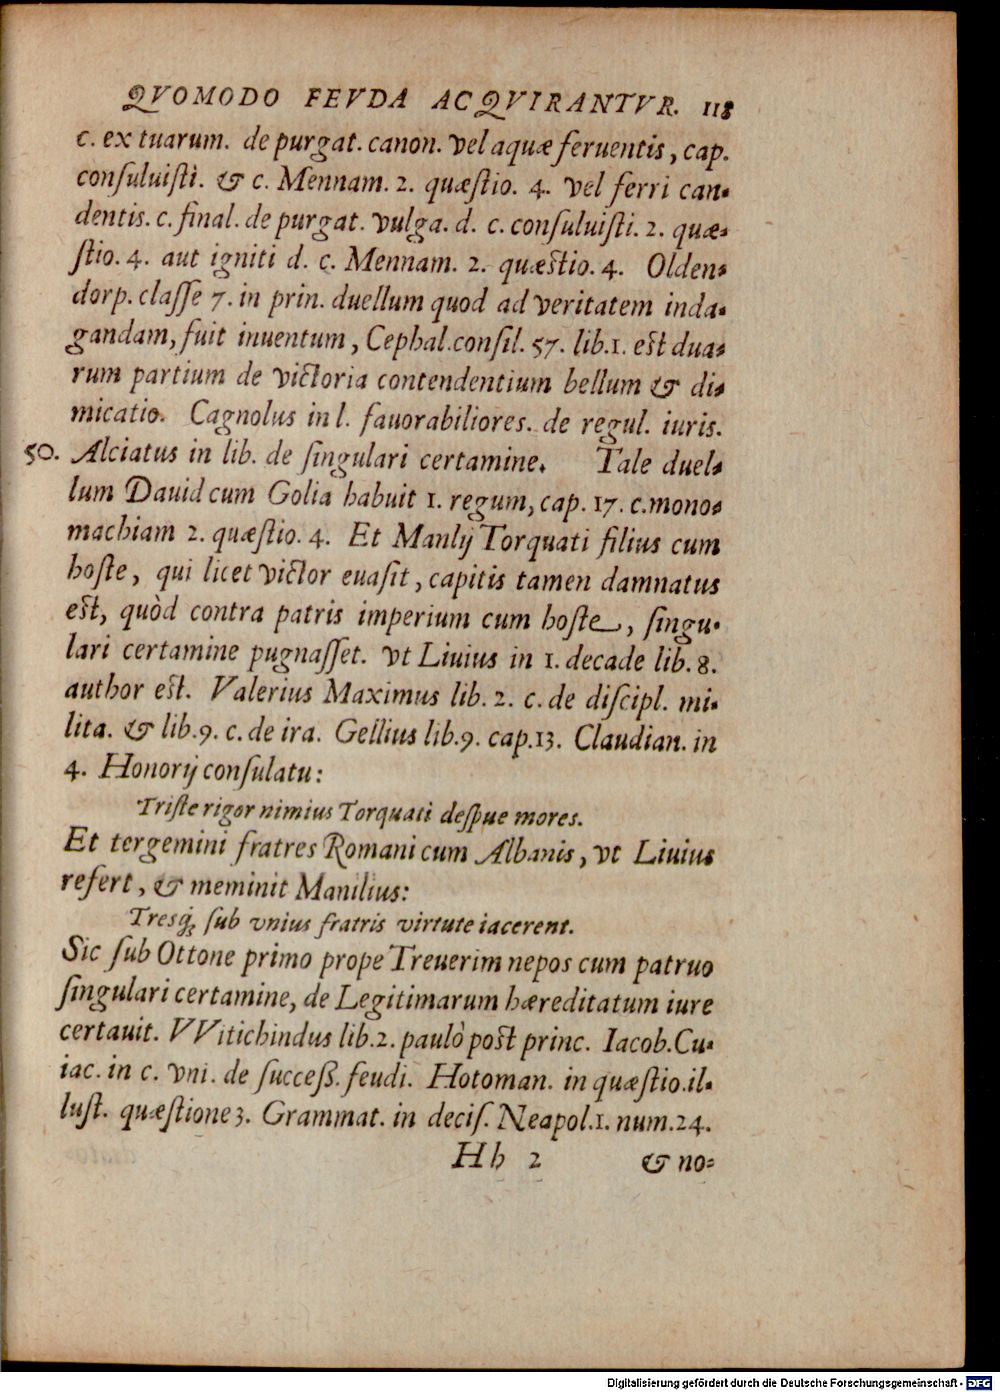 QVOMODO FEVDA ACQVIRANTVR. 118
c. ex tuarum. de purgat. canon. vel aquæ feruentis, cap.
conſuluiſti. & c. Mennam. 2. quæſtio. 4. vel ferri can-
dentis. c. final. de purgat. vulga. d. c. conſuluiſti. 2. quæ-
ſtio. 4. aut igniti d. c. Mennam. 2. quæſtio. 4. Olden-
dorp. claſſe 7. in prin. duellum quod ad veritatem inda-
gandam, fuit inuentum, Cephal. conſil. 57. lib. 1. eſt dua-
rum partium de victoria contendentium bellum & di-
micatio. Cagnolus in l. fauorabiliores. de regul. iuris.
50. Alciatus in lib. de ſingulari certamine. Tale duel-
lum Dauid cum Golia habuit 1. regum, cap. 17. c. mono-
machiam 2. quæſtio. 4. Et Manlij Torquati filius cum
hoſte, qui licet victor euaſit, capitis tamen damnatus
eſt, quòd contra patris imperium cum hoſte, ſingu-
lari certamine pugnaſſet. vt Liuius in 1. decade lib. 8.
author eſt. Valerius Maximus lib. 2. c. de diſcipl. mi-
lita. & lib. 9. c. de ira. Gellius lib. 9. cap. 13. Claudian. in
4. Honorij conſulatu:
Triſte rigor nimius Torquati deſpue mores.
Et tergemini fratres Romani cum Albanis, vt Liuius
refert, & meminit Manilius:
Tresq́; ſub vnius fratris virtute iacerent.
Sic ſub Ottone primo prope Treuerim nepos cum patruo
ſingulari certamine, de Legitimarum hæreditatum iure
certauit. VVitichindus lib. 2. paulò poſt princ. Iacob. Cu-
iac. in c. vni. de ſucceß. feudi. Hotoman. in quæſtio. il-
luſt. quæſtione 3. Grammat. in deciſ. Neapol. 1. num. 24.
Hh 2 & no-
Digitalisierung gefördert durch die Deutsche Forschungsgemeinschaft - DFG